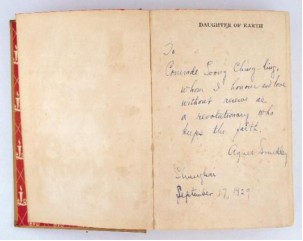 DAUGHTER OF EARTH
To
Comrade Soong Ching-ling,
whom I honour and love
without reserve as
a revolutionary who
keeps the faith.
Agnes Smedley
Shanghai
September 1929